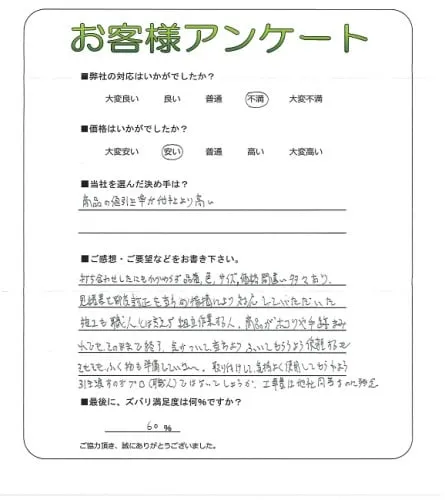 お客様アンケート
■弊社の対応はいかがでしたか?
大変良い 良い 普通 不満 大変不満
■価格はいかがでしたか?
大変安い 安い 普通 高い 大変高い
■当社を選んだ決め手は?
商品の値引き率が他社より高い
■ご感想・ご要望などをお書き下さい。
打ち合わせしたにもかかわらず品番、色、サイズ、価格間違い多々あり、
見積書も都度訂正を当方の指摘により対応していただいた
施工も職人とは言えず組立作業する人。商品がホコリや手跡まみ
れでそのままで終了、気がついて当方より、ふいてもらうよう依頼
ふく物も準備していない。取り付けして気持よく使用してもらうよう
引き渡すのがプロ(職人)ではないでしょうか、工事費は他社同等
■最後に、ズバリ満足度は何%ですか?
60 %
ご協力頂き、誠にありがとうございました。